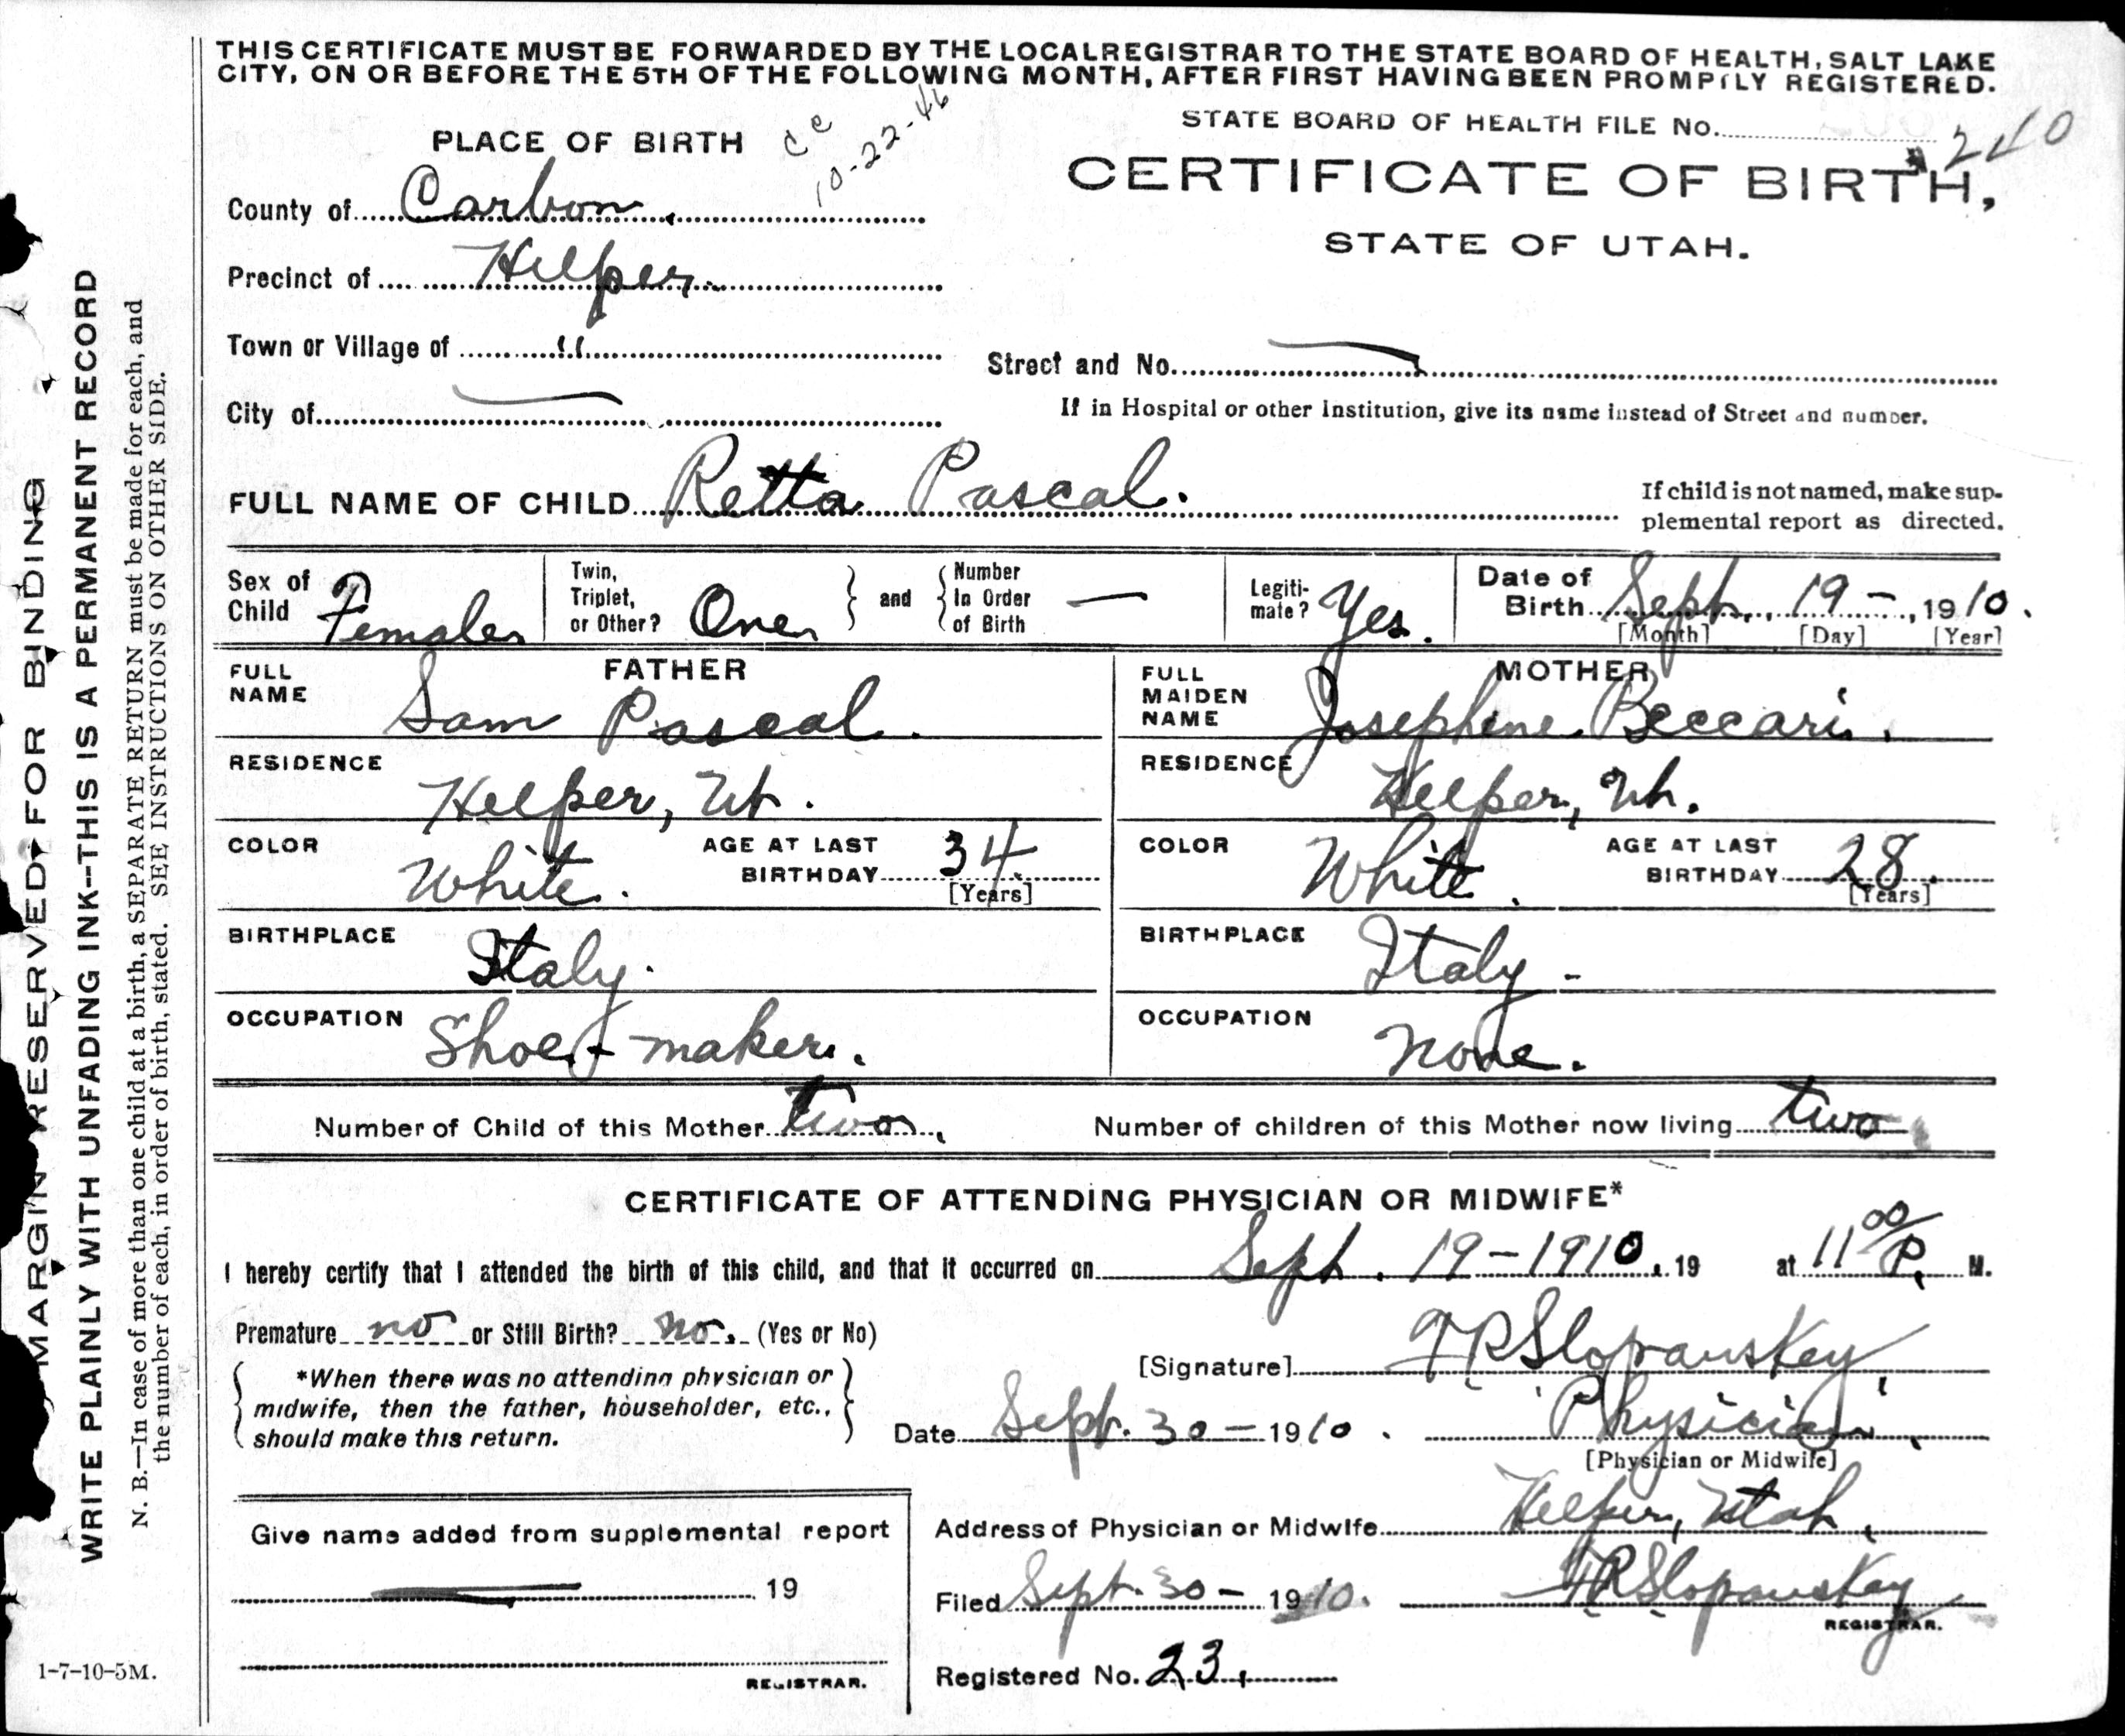 THIS CERTIFICATE MUST BE FORWARDED BY THE LOCAL REGISTRAR TO THE STATE BOARD OF HEALTH, SALT LAKE
CITY, ON OR BEFORE THE 5TH OF THE FOLLOWING MONTH, AFTER FIRST HAVING BEEN PROMPTLY REGISTERED.
PLACE OF BIRTH
cc
10-22-46
STATE BOARD OF HEALTH FILE No. 240
CERTIFICATE OF BIRTH,
STATE OF UTAH.
County of Carbon.
Precinct of Helper.
Town or Village of "
Street and No. —
City of —
If in Hospital or other Institution, give its name instead of Street and number.
FULL NAME OF CHILD Retta Pascal.
If child is not named, make sup-
plemental report as directed.
Sex of Child Female
Twin, Triplet, or Other? One
and
Number In Order of Birth —
Legiti-mate? Yes.
Date of Birth Sept. 19 -, 1910.
[Month] [Day] [Year]
FATHER
FULL NAME Sam Pascal.
RESIDENCE Helper, Ut.
COLOR White.
AGE AT LAST BIRTHDAY 34.
[Years]
BIRTHPLACE Italy.
OCCUPATION Shoe-maker.
MOTHER
FULL MAIDEN NAME Josephine Beccari.
RESIDENCE Helper, Ut.
COLOR White.
AGE AT LAST BIRTHDAY 28.
[Years]
BIRTHPLACE Italy -
OCCUPATION none.
Number of Child of this Mother two.
Number of children of this Mother now living two
CERTIFICATE OF ATTENDING PHYSICIAN OR MIDWIFE*
I hereby certify that I attended the birth of this child, and that it occurred on Sept. 19-1910. 19 at 11 00/P. M.
Premature no or Still Birth? no. (Yes or No)
*When there was no attending physician or
midwife, then the father, householder, etc.,
should make this return.
[Signature] Slopanskey
Date Sept. 30 - 1910. Physician.
[Physician or Midwife]
Give name added from supplemental report
19
REGISTRAR.
Address of Physician or Midwife Helper, Utah.
Filed Sept. 30 - 1910. Slopanskey
REGISTRAR.
Registered No. 23.
MARGIN RESERVED FOR BINDING
WRITE PLAINLY WITH UNFADING INK--THIS IS A PERMANENT RECORD
N. B.—In case of more than one child at a birth, a SEPARATE RETURN must be made for each, and
the number of each, in order of birth, stated. SEE INSTRUCTIONS ON OTHER SIDE.
1-7-10-5M.